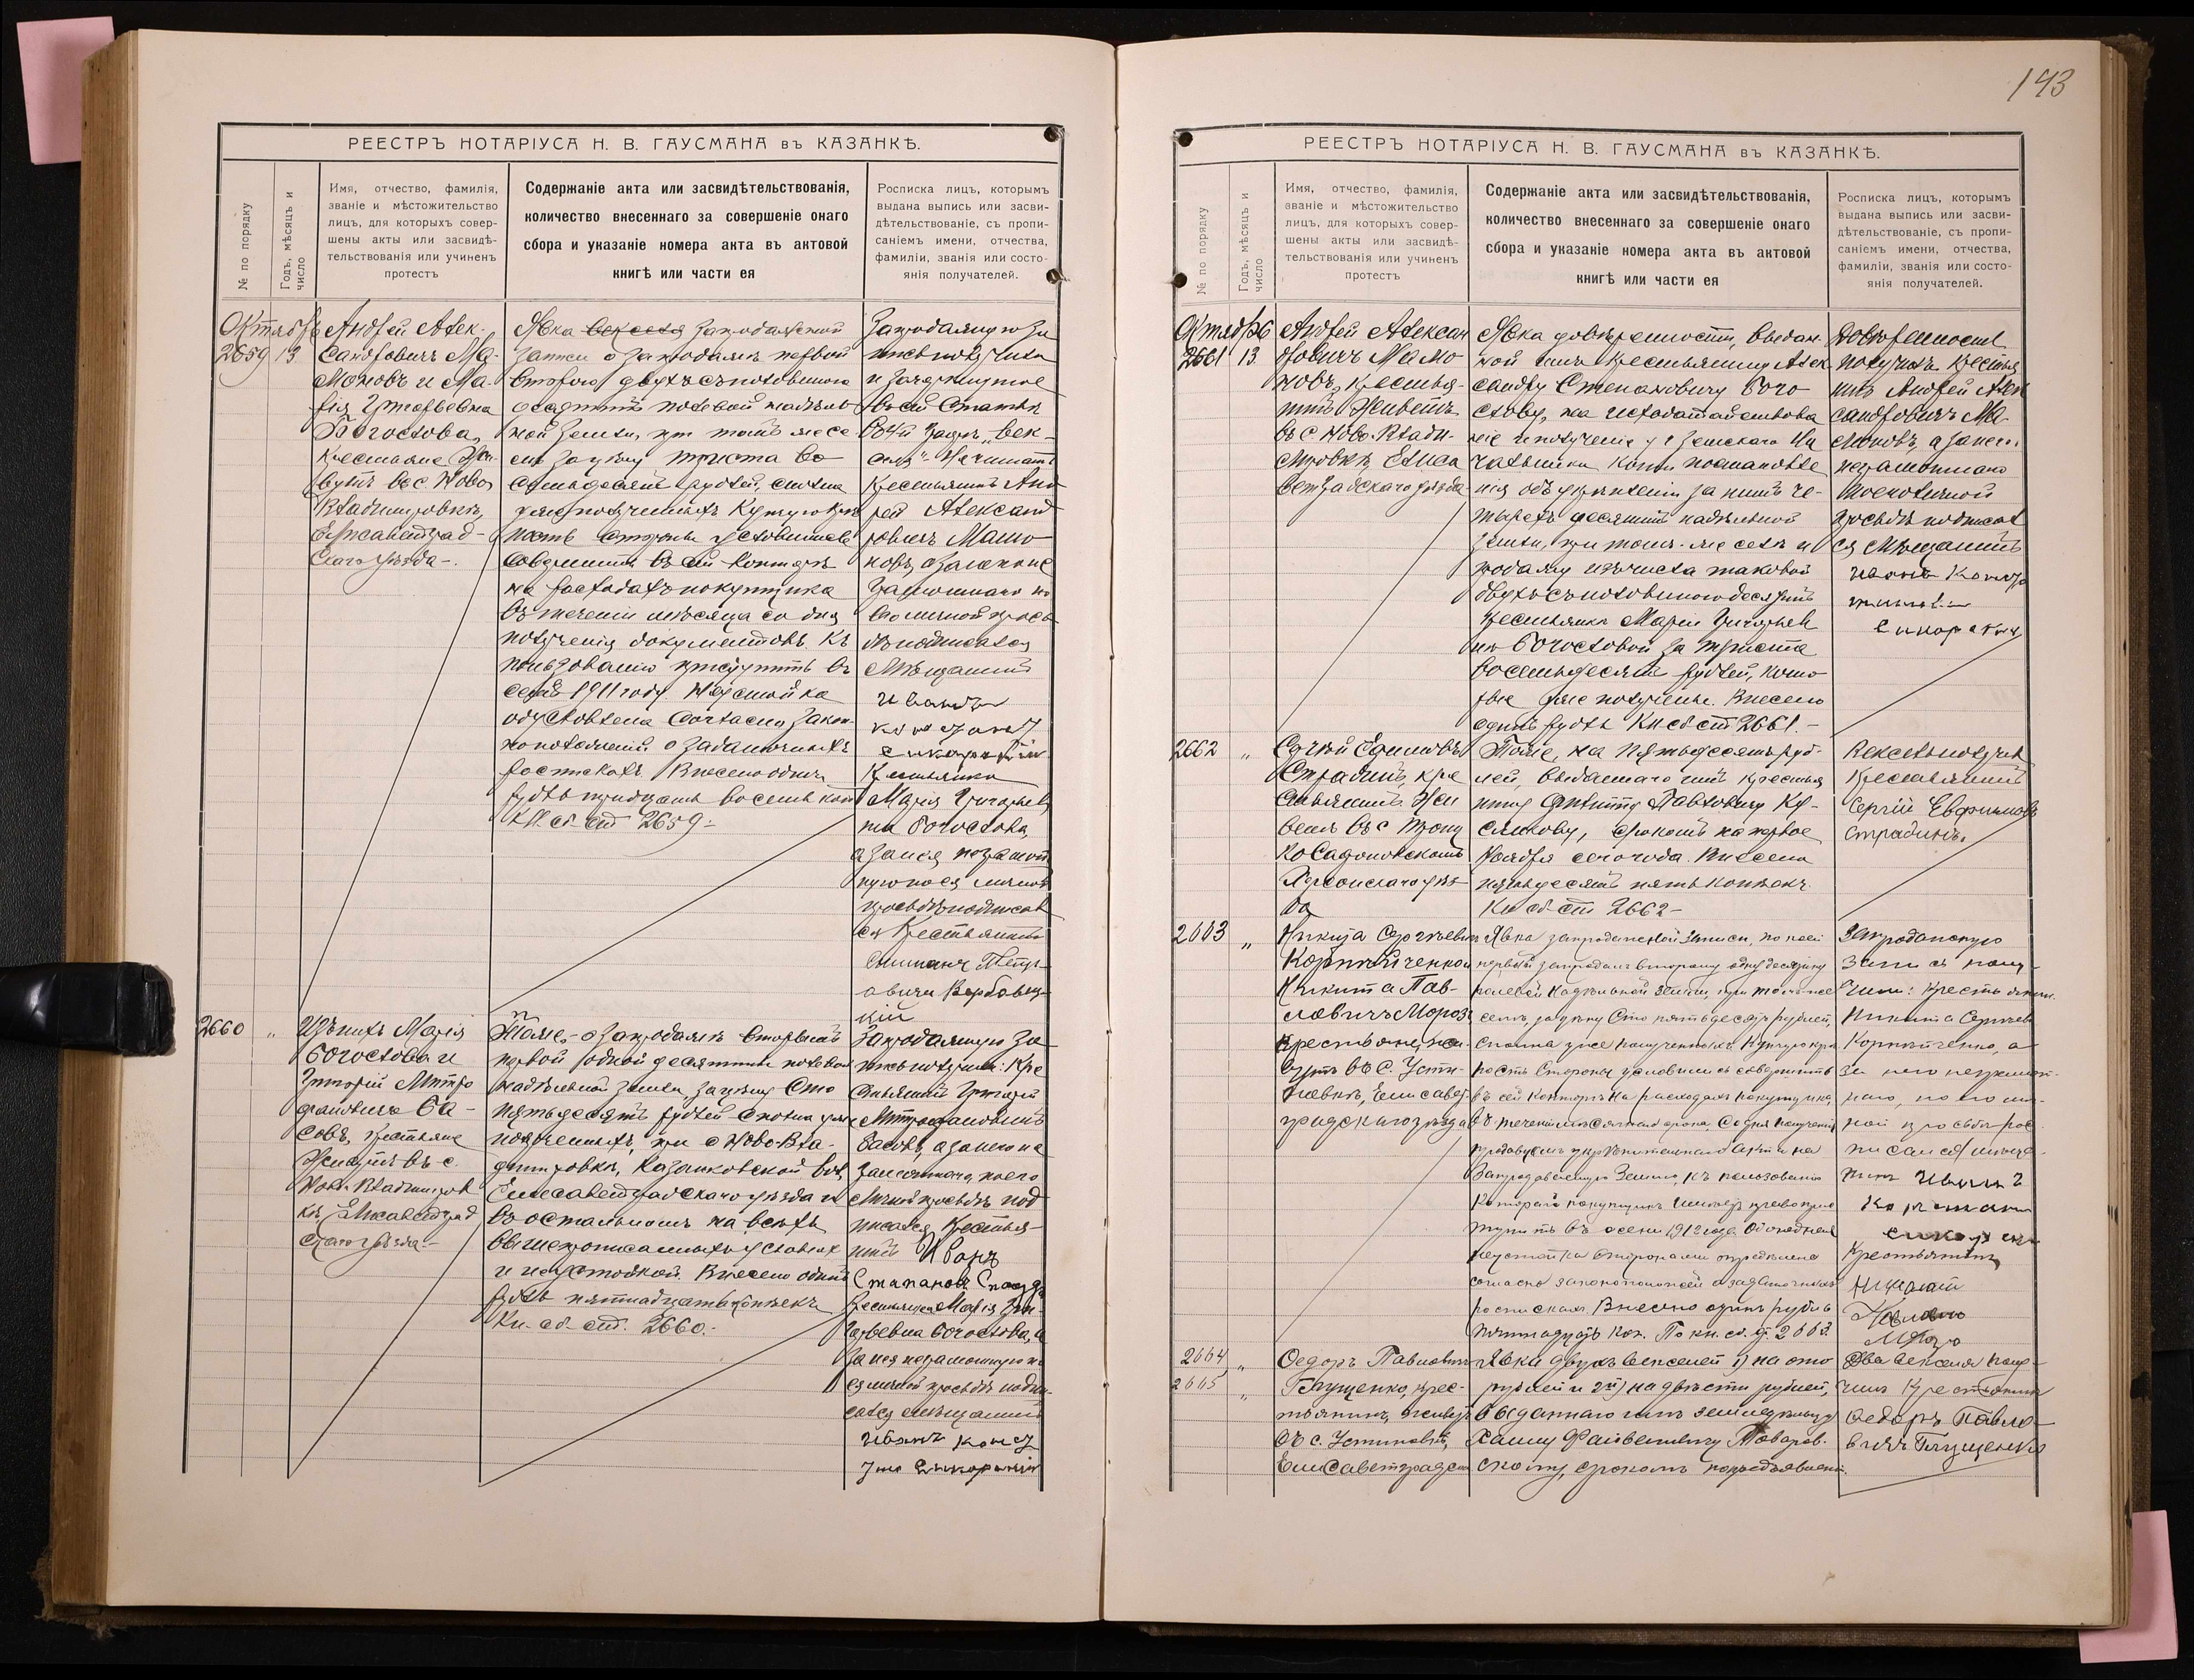 143
РЕЕСТРЪ НОТАРІУСА Н. В. ГАУСМАНА въ КАЗАНКѢ.
№ по порядку
Годъ, мѣсяцъ и
число
Имя, отчество, фамилія,
званіе и мѣстожительство
лицъ, для которыхъ совер-
шены акты или засвидѣ-
тельствованія или учиненъ
протестъ
Содержаніе акта или засвидѣтельствованія,
количество внесеннаго за совершеніе онаго
сбора и указаніе номера акта въ актовой
книгѣ или части ея
Росписка лицъ, которымъ
выдана выпись или засви-
дѣтельствованіе, съ пропи-
саніемъ имени, отчества,
фамиліи, званія или состо-
янія получателей.
Октябрь
2659 13
Андрей Алек-
сандровичъ Ма-
моновъ и Ма-
рія Григорьевна
Богослова,
крестьяне Жи-
вутъ въ с. Ново
Владимировкѣ,
Елисаветград-
скаго уѣзда-.
Явка векселя запродажной
записи о запродажѣ первой
второю двухъ съ половиною
десятинъ полевой надѣль-
ной земли, при томъ же се-
лѣ за цѣну триста во-
семьдесятъ рублей, сполна
уже полученныхъ Купчую крѣ
пость стороны условились
совершить въ сей конторѣ
на расходахъ покупщика
въ теченіи мѣсяца со дня
полученія документовъ. Къ
пользованію приступить въ
семъ 1911 году. Неустойка
обусловлена согласно закон-
ноположеній о задаточныхъ
роспискахъ. Внесено одинъ
рубль тридцать восемь коп
Кн. сб. ст 2659-
Запродажную за
пись получили
и зачеркнутое
въ сей статьѣ
"век-
селя" Не читать
Крестьянинъ Анд
рей Александ
ровичъ Мамо-
новъ, а за него не
грамотнаго по
его личной прось
бѣ подписался
Мѣщанинъ
Иванъ
Крестьянка
Марія Григорьев
на Богослова,
а за нея неграмот
ную по ея личной
просьбѣ подписал
ся Крестьянинъ
овичъ Вербовец-
кій
2660 "
Марія
Богослова и
Григорій Митро
фановичъ Ба-
совъ, крестьяне
Живутъ въ с.
Ново Владимиров
кѣ, Елисаветград
скаго уѣзда.-
Тоже, о запродажѣ второй
первой одной десятины полевой
надѣльной земли, за цѣну Сто
пятьдесятъ рублей сполна уже
полученныхъ, при с Ново-Вла-
димировкѣ, Казанковской вол,
Елисаветградскаго уѣзда и
въ остальномъ на всѣхъ
вышепрописанныхъ условіяхъ
и неустойкой. Внесено одинъ
рубль пятнадцать копѣекъ.
Кн. сб. ст. 2660.-
Запродажную за
пись получили: Кре
стьянинъ Григорій
Митрофановичъ
Басовъ, а за него не
грамотнаго, по его
личной просьбѣ под
писался Крестья-
нинъ Иванъ
Крестьянка Марія Гри-
горьевна Богослова, а
за нея неграмотную по
ея личной просьбѣ подпи-
сался мѣщанинъ
Иванъ
РЕЕСТРЪ НОТАРІУСА Н. В. ГАУСМАНА въ КАЗАНКѢ.
№ по порядку
Годъ, мѣсяцъ и
число
Имя, отчество, фамилія,
званіе и мѣстожительство
лицъ, для которыхъ совер-
шены акты или засвидѣ-
тельствованія или учиненъ
протестъ
Содержаніе акта или засвидѣтельствованія,
количество внесеннаго за совершеніе онаго
сбора и указаніе номера акта въ актовой
книгѣ или части ея
Росписка лицъ, которымъ
выдана выпись или засви-
дѣтельствованіе, съ пропи-
саніемъ имени, отчества,
фамиліи, званія или состо-
янія получателей.
Октябрь
2661 13
Андрей Алексан
дровичъ Мамо
новъ, крестья-
нинъ Живетъ
въ с. Ново-Влади-
мировкѣ, Елиса
ветградскаго уѣзда-
Явка довѣренности, выдан-
ной имъ крестьянину Алек
сандру Степановичу Бого
слову, на исходатайствова
ніе и полученіе у Земскаго На
чальника копіи постановле
нія объ укрѣпленіи за нимъ че-
тырехъ десятинъ надѣльной
земли, при томъ-же селѣ и
продажу изъ числа таковой
двухъ съ половиною десятинъ
крестьянкѣ Маріи Григорьев
нѣ Богословой за триста
восемьдесятъ рублей, кото-
рые уже получены. Внесено
одинъ рубль Кн сб ст 2661.-
Довѣренность
получилъ кресть
нинъ Андрей Алек
сандровичъ Ма-
моновъ, а за него
неграмотнаго
по его личной
просьбѣ подписал
ся Мѣщанинъ
Иванъ
2662 "
Сергѣй Ефимовъ
Страдинъ, кре
стьянинъ Жи
ветъ въ с Троиц
ко Сафоновскомъ
Херсонскаго уѣз
да
Тоже, на пятьдесятъ руб-
лей, выданнаго имъ крестья
нину Филиппу Павловичу Ку-
сликову, срокомъ на первое
Ноября сего года. Внесено
пятьдесятъ пять копѣекъ.
Кн сб ст 2662-
Вексель получилъ
Крестьянинъ
Сергій Евфимовъ
Страдинъ.
2663 "
Никита Сергѣевичъ
Корнѣйченко и
Никита Пав-
ловичъ Мороз
крестьяне, жи-
вутъ въ С. Усти-
новкѣ, Елисавет-
градскаго уѣзда
Явка запродажной записи, по коей
первый запродалъ второму одну десятину
полевой надѣльной земли, при томъ-же
селѣ, за цѣну Сто пятьдесятъ рублей,
сполна уже полученныхъ Купчую крѣ
пость Стороны условились совершить
въ сей Конторѣ на расходахъ покупщика,
въ теченіи мѣсячнаго срока, Со дня полученія
продавцомъ укрѣпительнаго акта на
Запродаваемую Землю, къ пользованію
которой покупщикъ имѣетъ право прис
тупить въ осени 1912 года Обоюдная
неустойка сторонами опредѣлена
согласно законоположеній о задаточныхъ
роспискахъ. Внесено одинъ рубль
пятнадцать коп. По кн. сб. ст. 2663.
Запроданную
Запись полу-
чили: Крестьянин.
Никита Сергѣев
Корнѣйченко, а
за него неграмот-
наго, по его лич-
ной просьбѣ рос-
писался мѣща-
нинъ Иванъ
Крестьянинъ
Никита
2664 "
2665 "
Федоръ Павлович
Глущенко, крес-
тьянинъ, живетъ
въ с. Устиновкѣ,
Елисаветградск
Явка двухъ векселей 1) на сто
рублей и 2й) на двѣсти рублей,
выданнаго имъ земледѣльцу
срокомъ по предъявлені.
Два векселя полу-
чилъ Крестьянинъ
Федоръ Павло-
вичъ Глущенко